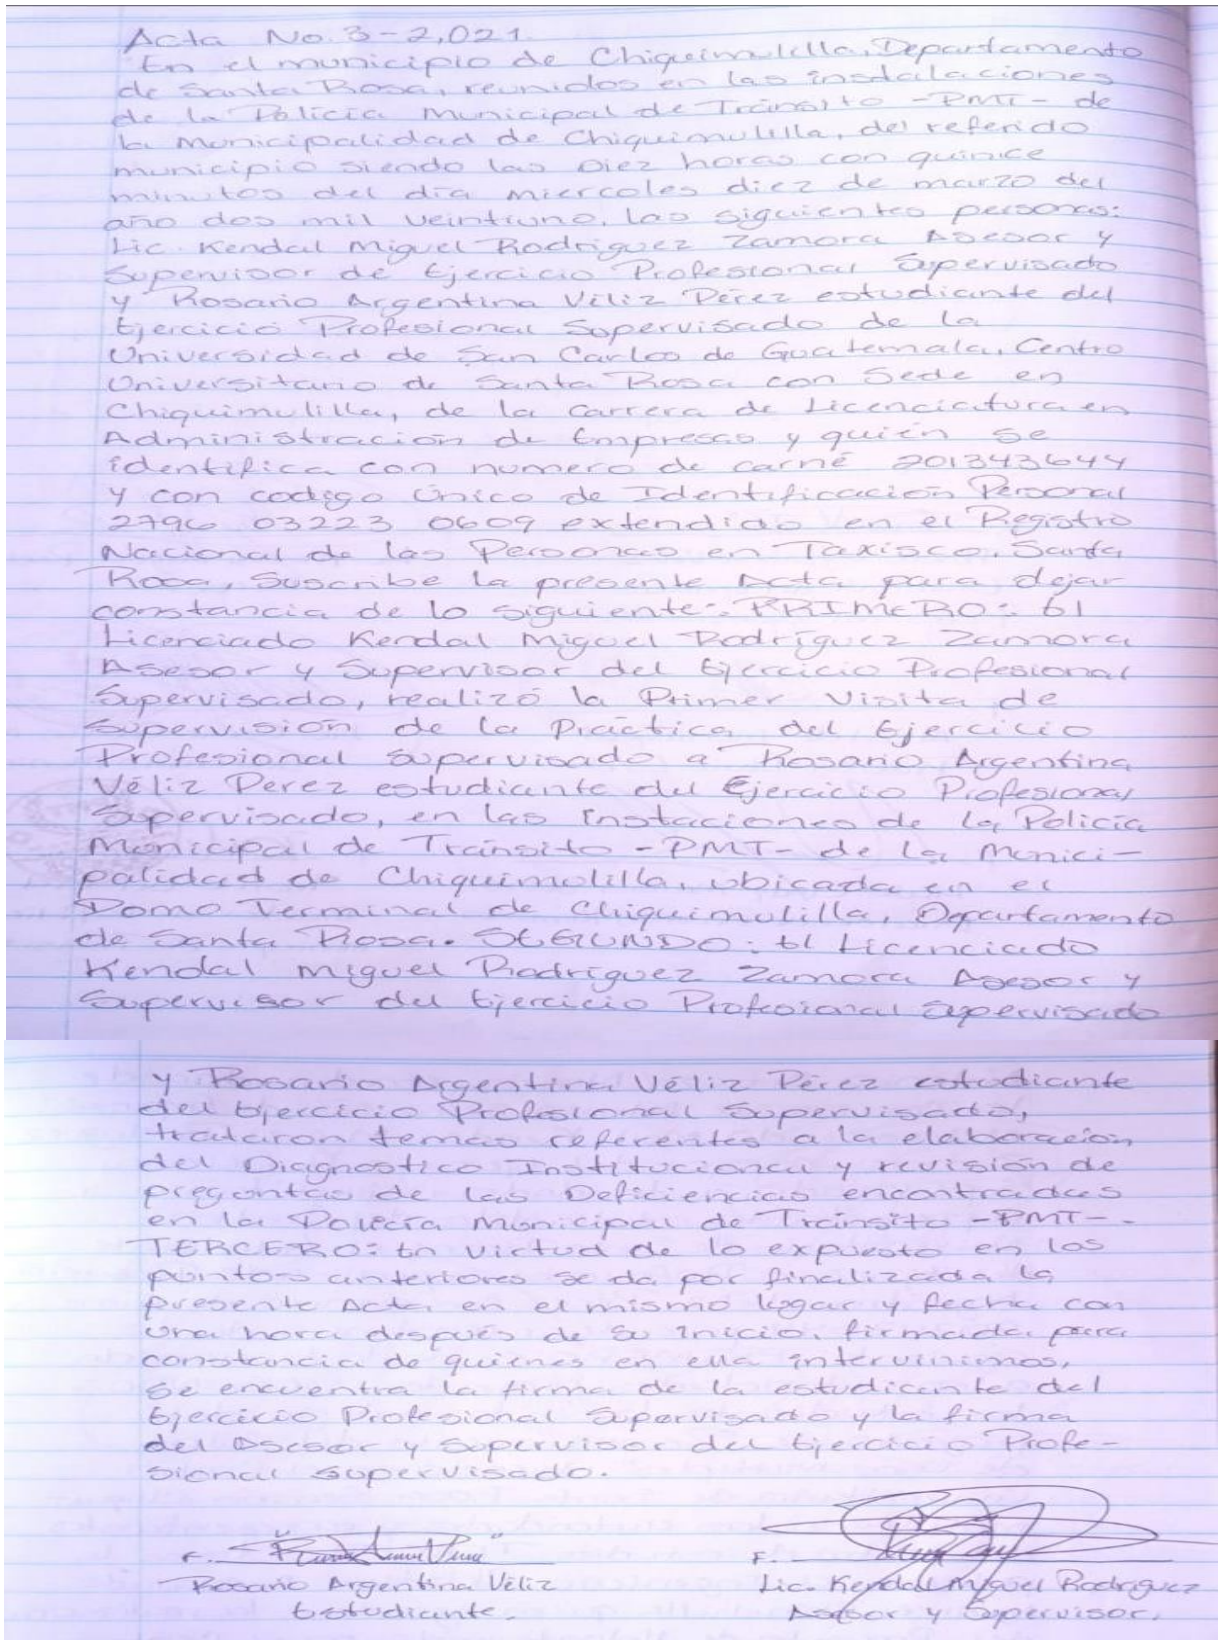 Acta No. 3-2,021.
En el municipio de Chiquimulilla, Departamento
de Santa Rosa, reunidos en las instalaciones
de la Policía Municipal de Tránsito -PMT- de
la Municipalidad de Chiquimulilla, del referido
municipio siendo las Diez horas con quince
minutos del día miercoles diez de marzo del
año dos mil veintiuno, las siguientes personas:
Lic. Kendal Miguel Rodríguez Zamora Asesor y
Supervisor de Ejercicio Profesional Supervisado
y Rosario Argentina Véliz Pérez estudiante del
Ejercicio Profesional Supervisado de la
Universidad de San Carlos de Guatemala, Centro
Universitario de Santa Rosa con Sede en
Chiquimulilla, de la Carrera de Licenciatura en
Administración de Empresas y quién se
identifica con numero de carné 201343644
y con codigo Único de Identificación Personal
2796 03223 0609 extendido en el Registro
Nacional de las Personas en Taxisco, Santa
Rosa, Suscribe la presente Acta para dejar
constancia de lo siguiente: PRIMERO: El
Licenciado Kendal Miguel Rodríguez Zamora
Asesor y Supervisor del Ejercicio Profesional
Supervisado, realizó la Primer Visita de
Supervisión de la Práctica del Ejercicio
Profesional Supervisado a Rosario Argentina
Véliz Perez estudiante del Ejercicio Profesional
Supervisado, en las instaciones de la Policía
Municipal de Tránsito -PMT- de la Munici-
palidad de Chiquimulilla, ubicada en el
Domo Terminal de Chiquimulilla, Departamento
de Santa Rosa. SEGUNDO: El Licenciado
Kendal Miguel Rodríguez Zamora Asesor y
Supervisor del Ejercicio Profesional Supervisado
y Rosario Argentina Véliz Pérez estudiante
del Ejercicio Profesional Supervisado,
trataron temas referentes a la elaboración
del Diagnostico Institucional y revisión de
preguntas de las Deficiencias encontradas
en la Policía Municipal de Tránsito -PMT-.
TERCERO: En virtud de lo expuesto en los
puntos anteriores se da por finalizada la
presente Acta en el mismo lugar y fecha con
una hora después de su inicio, firmada para
constancia de quienes en ella intervinimos,
se encuentra la firma de la estudiante del
Ejercicio Profesional Supervisado y la firma
del Asesor y Supervisor del Ejercicio Profe-
sional Supervisado.
F.
F.
Rosario Argentina Véliz
Lic. Kendal Miguel Rodríguez
Estudiante.
Asesor y Supervisor.